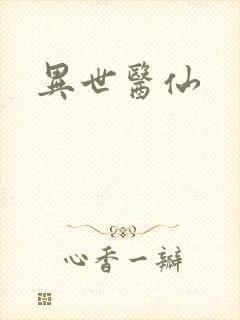 異世醫仙
心香一瓣